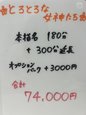 とろとろな
女神たち
本指名 180分
+ 300分延長
オプション
パック +3000円
合計
74.000円